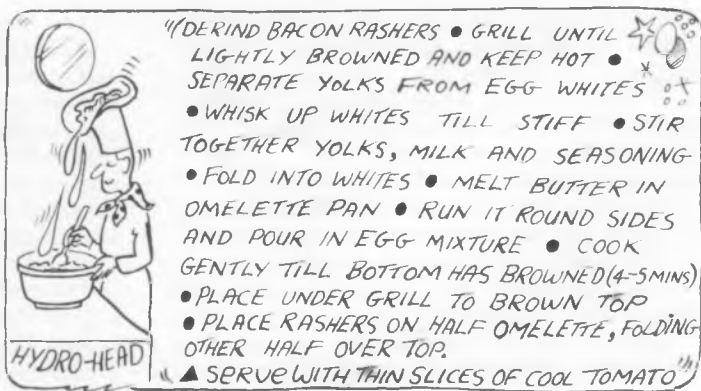 "(DERIND BACON RASHERS ● GRILL UNTIL
LIGHTLY BROWNED AND KEEP HOT ●
SEPARATE YOLKS FROM EGG WHITES
● WHISK UP WHITES TILL STIFF ● STIR
TOGETHER YOLKS, MILK AND SEASONING
● FOLD INTO WHITES ● MELT BUTTER IN
OMELETTE PAN ● RUN IT ROUND SIDES
AND POUR IN EGG MIXTURE ● COOK
GENTLY TILL BOTTOM HAS BROWNED (4-5 MINS)
● PLACE UNDER GRILL TO BROWN TOP
● PLACE RASHERS ON HALF OMELETTE, FOLDING
OTHER HALF OVER TOP.
▲ SERVE WITH THIN SLICES OF COOL TOMATO"
HYDRO-HEAD